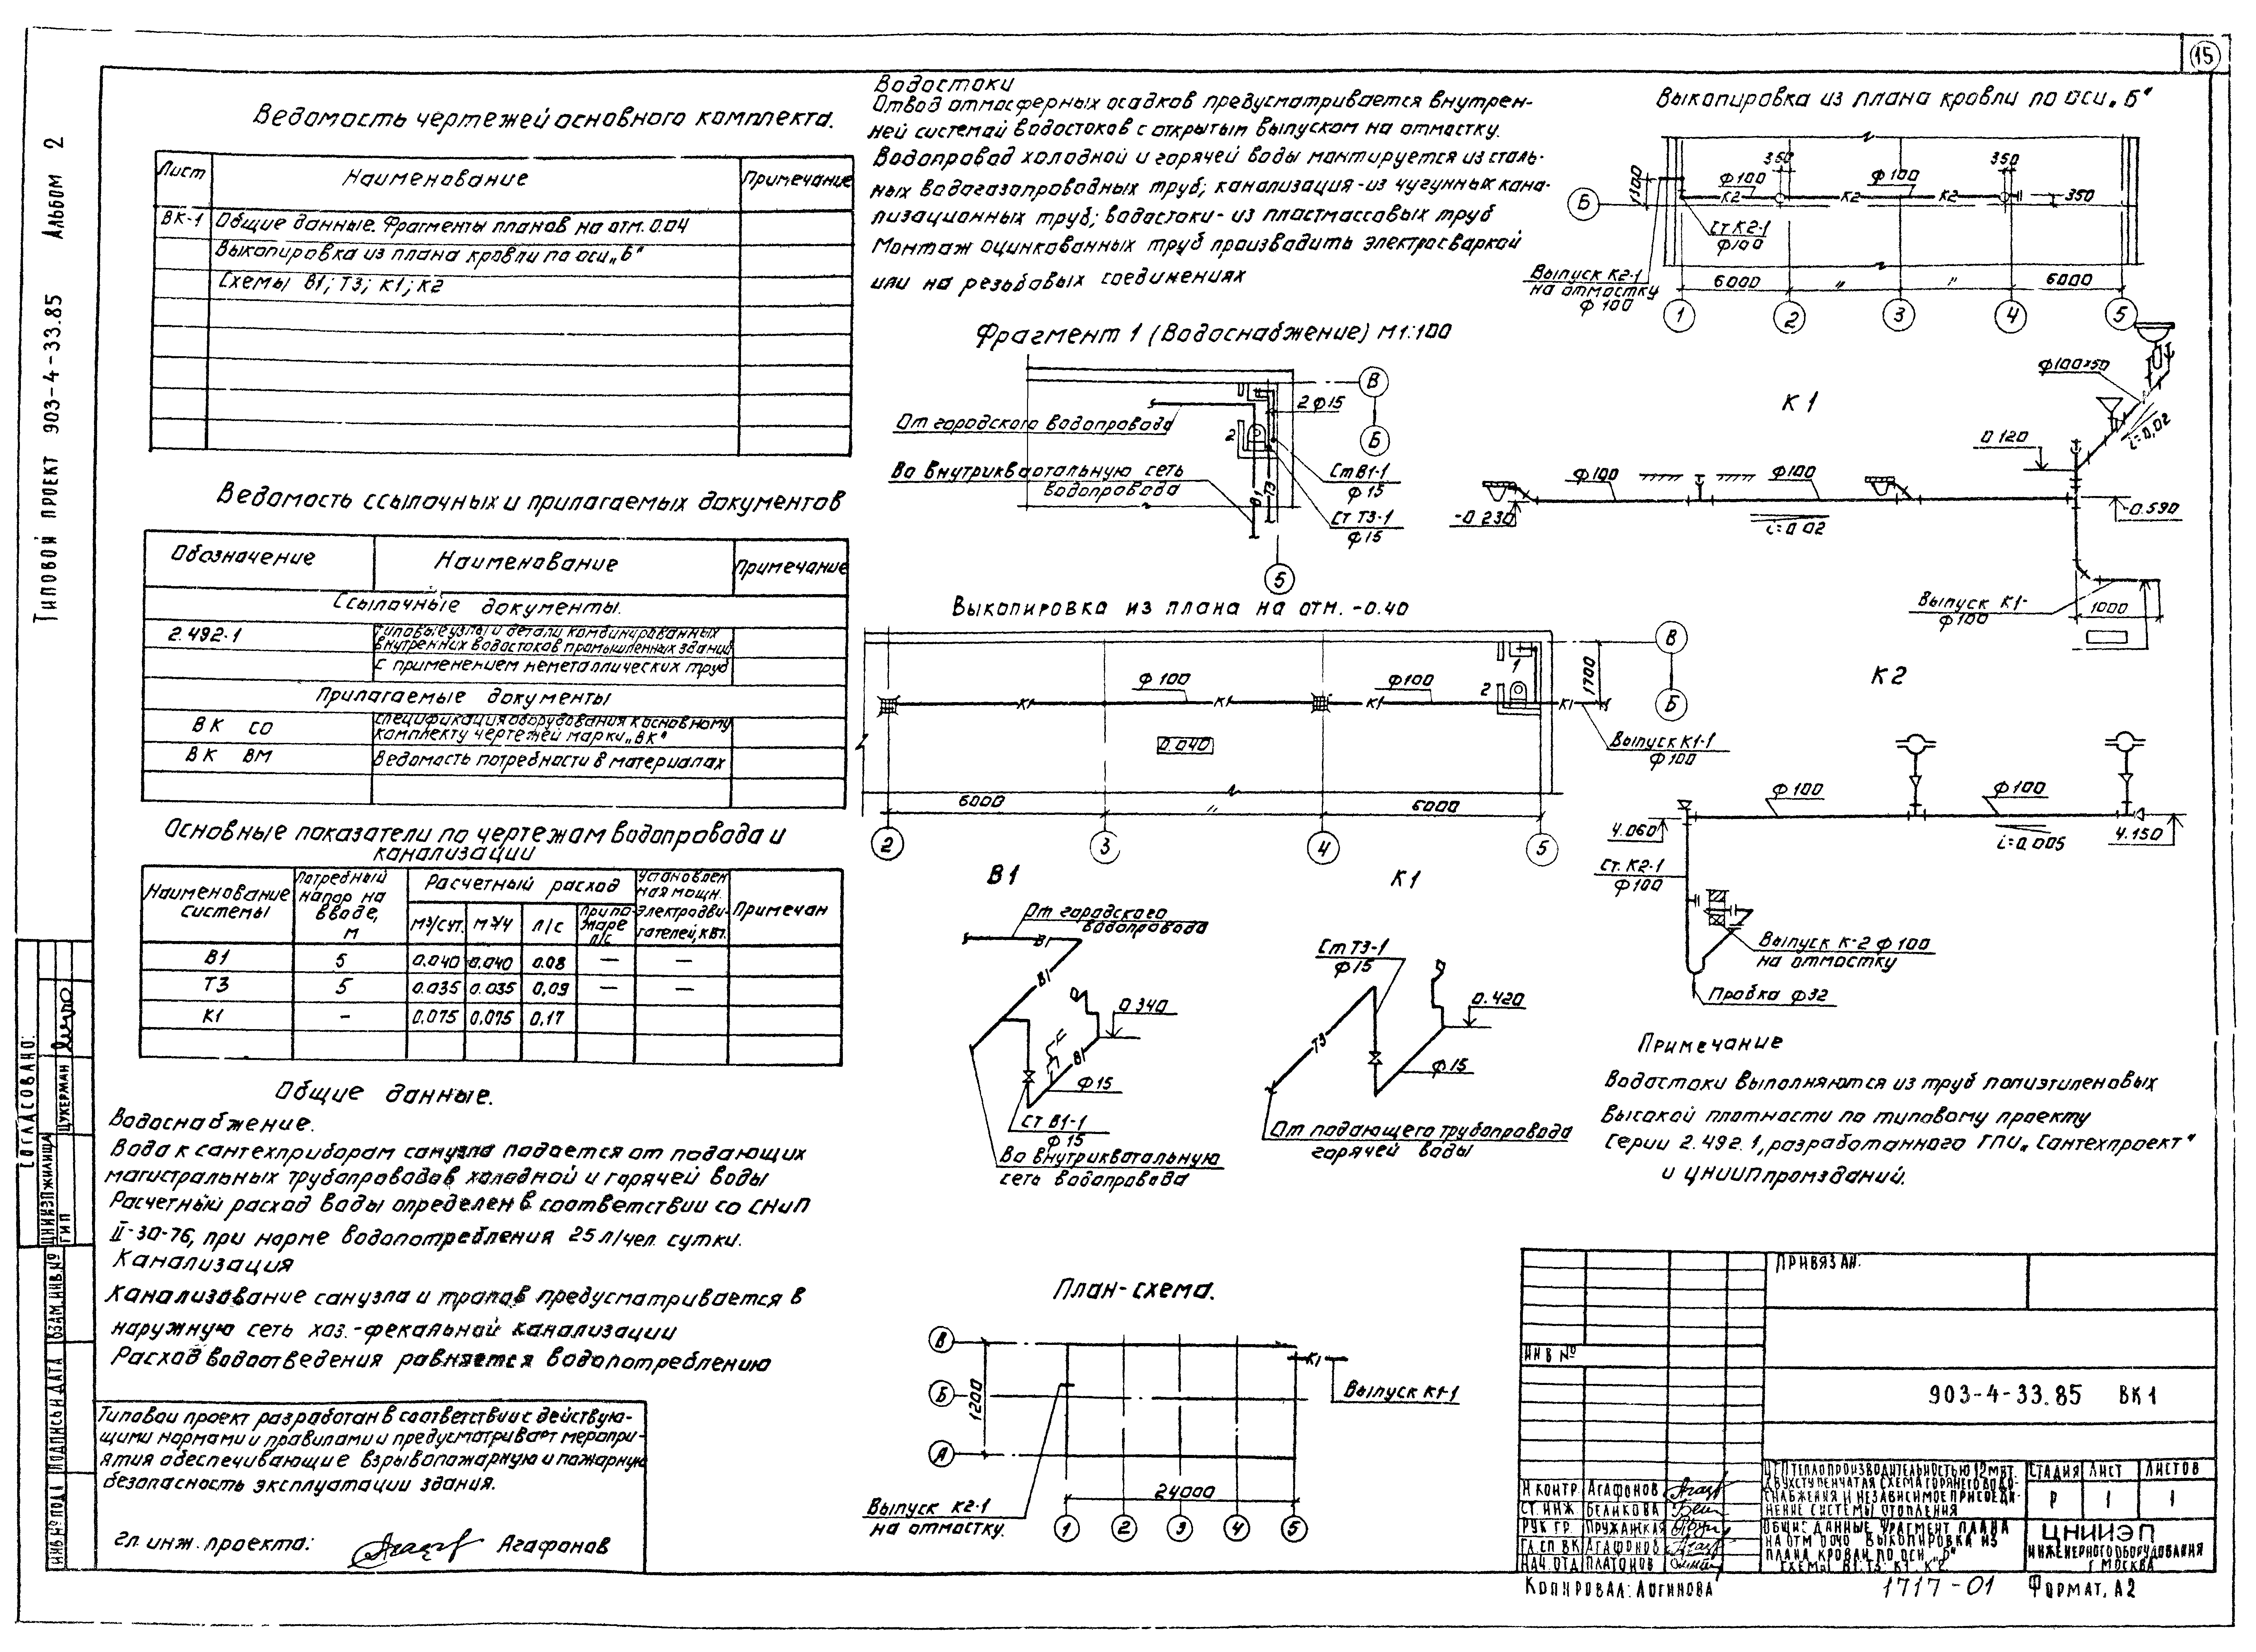 15
Типовой проект 903-4-33.85 Альбом 2
Ведомость чертежей основного комплекта.
Лист
Наименование
Примечание
ВК-1
Общие данные. Фрагменты планов на отм. 0.04
Выкопировка из плана кровли по оси „Б"
Схемы В1; Т3; К1; К2
Ведомость ссылочных и прилагаемых документов
Обозначение
Наименование
Примечание
Ссылочные документы.
2.492-1
Типовые узлы и детали комбинированных
внутренних водостоков промышленных зданий
с применением неметаллических труб
Прилагаемые документы
ВК СО
Спецификация оборудования к основному
комплекту чертежей марки „ВК"
ВК ВМ
Ведомость потребности в материалах
Основные показатели по чертежам водопровода и
канализации
Наименование
системы
Потребный
напор на
вводе,
м
Расчетный расход
м³/сут.
м³/ч
л/с
При по-
жаре
л/с
Установлен
ная мощн.
электродви-
гателей, кВт.
Примечан
В1 5 0.040 0.040 0.08 — —
Т3 5 0.035 0.035 0,09 — —
К1 - 0,075 0,075 0,17
Общие данные.
Водоснабжение.
Вода к сантехприборам санузла подается от подающих
магистральных трубопроводов холодной и горячей воды
Расчетный расход воды определен в соответствии со СНиП
II-30-76, при норме водопотребления 25 л/чел. сутки.
Канализация
Канализование санузла и трапов предусматривается в
наружную сеть хоз.-фекальной канализации
Расход водоотведения равняется водопотреблению
Типовой проект разработан в соответствии с действую-
щими нормами и правилами и предусматривает меропри-
ятия обеспечивающие взрывопожарную и пожарную
безопасность эксплуатации здания.
гл. инж. проекта:
Агафонов
Водостоки
Отвод атмосферных осадков предусматривается внутрен-
ней системой водостоков с открытым выпуском на отмостку.
Водопровод холодной и горячей воды монтируется из сталь-
ных водогазопроводных труб; канализация - из чугунных кана-
лизационных труб; водостоки - из пластмассовых труб
Монтаж оцинкованных труб производить электросваркой
или на резьбовых соединениях
Фрагмент 1 (Водоснабжение) М1:100
В
Б
2 ф15
От городского водопровода
2
Во внутриквартальную сеть
водопровода
В1
Т3
Ст В1-1
ф 15
Ст Т3-1
ф15
5
Выкопировка из плана на отм. -0.40
В
Б
1700
1
2
ф 100
ф100
К1
К1
К1
К1
0.040
Выпуск К1-1
ф 100
6000
〃
6000
2
3
4
5
В1
От городского
водопровода
В1
В1
В1
0.340
ф15
Ст В1-1
ф 15
Во внутриквартальную
сеть водопровода
К1
Ст Т3-1
ф15
Т3
0.420
ф15
От подающего трубопровода
горячей воды
План-схема.
В
Б
А
1200
24000
К1
Выпуск К1-1
Выпуск К2-1
на отмостку.
1
2
3
4
5
Выкопировка из плана кровли по оси „Б"
350
350
1300
ф100
ф100
К2
К2
К2
350
Б
Ст К2-1
ф100
Выпуск К2-1
на отмостку
ф 100
6000
〃
〃
6000
1
2
3
4
5
К1
ф100×50
i=0,02
0.120
ф100
ф100
-0.230
i=0.02
-0.590
Выпуск К1-
ф100
1000
К2
ф100
ф100
4.060
i=0.005
4.150
Ст. К2-1
ф100
Выпуск К-2 ф100
на отмостку
Пробка ф32
Примечание
Водостоки выполняются из труб полиэтиленовых
высокой плотности по типовому проекту
серии 2.492.1, разработанного ГПИ „Сантехпроект"
и ЦНИИпромзданий.
Привязан:
Инв №
903-4-33.85 ВК1
ЦТП теплопроизводительностью 12 мвт.
Двухступенчатая схема горячего водо-
снабжения и независимое присоеди-
нение системы отопления
Стадия Лист Листов
Р 1 1
Н контр. Агафонов
Ст. инж Беликова
Рук гр. Пружанская
Гл. сп ВК Агафонов
Нач. отд Платонов
Общие данные фрагмент плана
на отм 0.040 Выкопировка из
плана кровли по оси „Б"
Схемы В1; Т3; К1; К2
ЦНИИЭП
инженерного оборудования
г Москва
Копировал: Логинова
1717-01
Формат. А2
Согласовано:
ЦНИИЭПжилища
ГИП
Цукерман
Взам. инв №
Подпись и дата
Инв. № подл